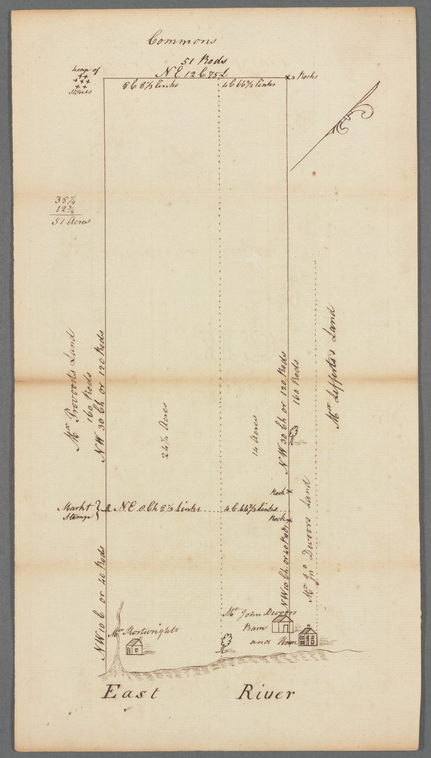 Commons
51 Rods
N E 12 C 75 L
heap of
Stones
8 C 8⅓ links
4 C 66⅔ links
Rocks
38¼
12¾
51 Acres
Mr. Provoosts Land
160 Rods
N W 30 Ch or 120 Rods
24¼ Acres
14 Acres
N W 30 Ch or 120 Rods
160 Rods
Mr. Lefferts's Land
Rock
Markt
Stump
N. E. 8 Ch 8⅓ links
4 C 66⅔ links
Rock
Mr. Jno. Devoors Land
N W 10 C or 40 Rods
N W 10 Ch or 40 Rods
Mr.
Mr. John Devoors
Barn
and
East River